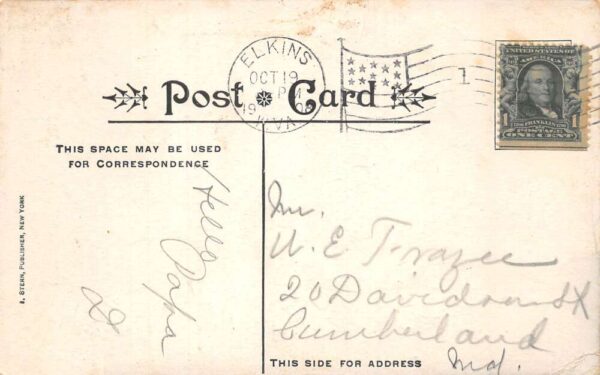 ELKINS
OCT 19
PM
19
W.VA
1
UNITED STATES OF
AMERICA
1 1
FRANKLIN
POSTAGE
ONE CENT
Post Card
THIS SPACE MAY BE USED
FOR CORRESPONDENCE
A. STERN, PUBLISHER, NEW YORK
Hello
Papa
Mr.
W. E Frazee
20 Davidson St
Cumberland
Md.
THIS SIDE FOR ADDRESS